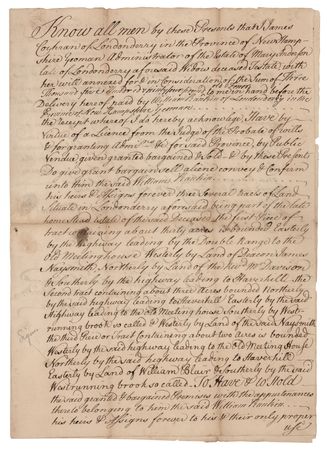 Know all men by these Presents that I James
Cochran of Londonderry in the Province of New Hamp-
shire yeoman Administrator of the Estate of Mary Anderson
late of Londonderry aforesaid Widow deceased Testate with
her will annexed for & in Consideration of the Sum of Three
Thousand five Hundred & ninety four pounds old Tenor
Delivery here of paid by William Rankin of Londonderry in the
Province of New Hampshire Yeoman
the Receipt whereof I do hereby acknowledge Have by
Virtue of a Licence from the Judge of the Probate of wills
& for granting Adm for said Province, by Public
Vendue given granted bargained & sold & by these presents
Do give grant bargain sell aliene convey & confirm
unto him the said William Rankin
his heirs & Assigns forever three Several tracts of Land
situate in Londonderry aforesaid being part of the late
homestead estate of the said deceased the first Piece or
tract containing about thirty acres is bounded Easterly
by the highway leading by the Double Range to the
Old Meetinghouse Westerly by Land of Deacon James
Naysmith Northerly by Land of the Revd Mr Davidson
& Southerly by the highway leading to Haverhill the
Second tract containing about three Acres bounded Northerly
by the said highway leading to Haverhill Easterly by the said
highway leading to the old Meeting house Southerly by West-
running brook so called & Westerly by Land of the said Naysmith
the third Piece or tract Containing about two acres is bounded
Westerly by the said highway leading to the Old Meeting House
Northerly by the said highway leading to Haverhill
Easterly by Land of William Blair & Southerly by the said
West running brook so called. To Have & to Hold
the said granted & bargained Premises with the appurtenances
thereto belonging to him the said William Rankin
his heirs & Assigns forever to his & their only proper
use